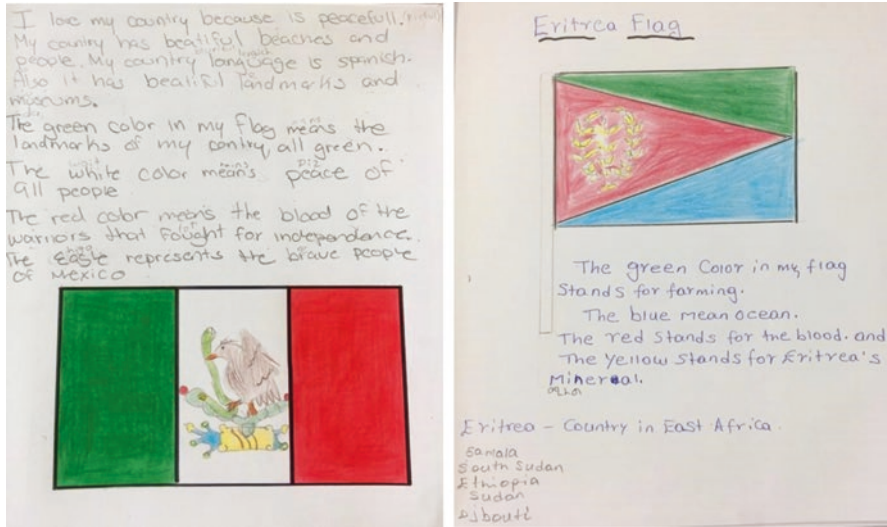 I love my country because is peacefull.
My country has beatiful beaches and
people. My country language is spanish.
Also it has beatiful landmarks and
museums.
The green color in my flag means the
landmarks of my contry, all green.
The white color means peace of
all people
The red color means the blood of the
warriors that fought for independence.
The Eagle represents the brave people
of Mexico
Eritrea Flag
The green Color in my flag
Stands for farming.
The blue mean ocean.
The red Stands for the blood. and
The Yellow Stands for Eritrea's
Mineral.
Eritrea - Country in East Africa
Samala
South Sudan
Ethiopia
Sudan
Djbouti